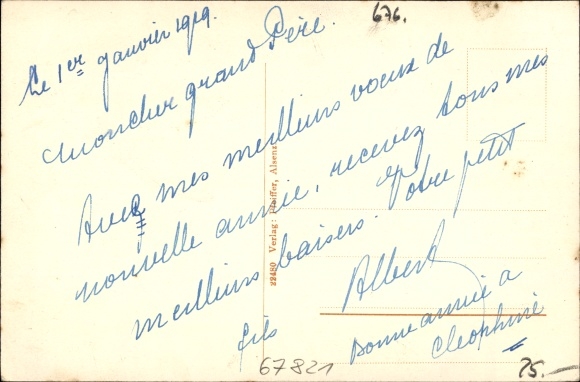 676.
Le 1er janvier 1919.
Mon cher grand Père.
Avec mes meilleurs voeux de
nouvelle année, recevez tous mes
meilleurs baisers. Votre petit
fils Albert
Bonne année a
Cleophine
22480 Verlag: Pfeiffer, Alsenz
67821
25.-